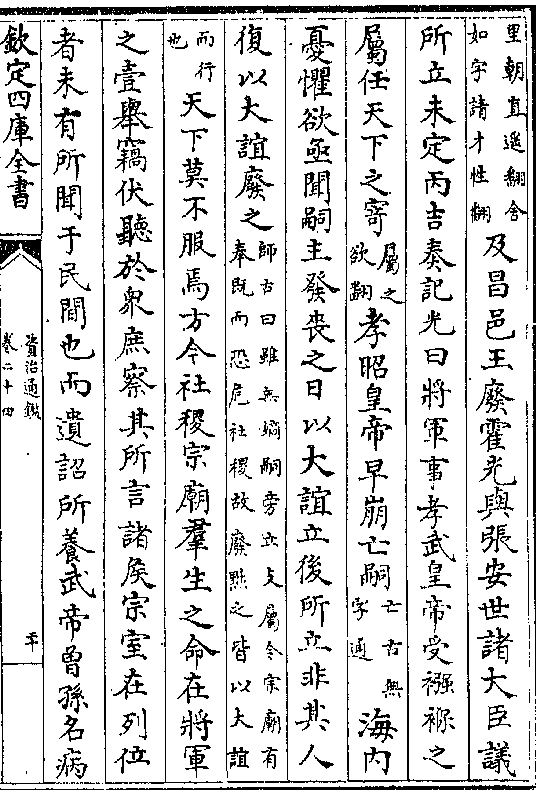 里朝直遥翻舍
如字請才性翻
及昌邑王廢霍光與張安世諸大臣議
所立未定丙吉奏記光曰將軍事孝武皇帝受襁褓之
屬任天下之寄
屬之
欲翻
孝昭皇帝早崩亡嗣
亡古無
字通
海内
憂懼欲亟聞嗣主發喪之日以大誼立後所立非其人
復以大誼廢之
師古曰雖無嫡嗣旁立支屬令宗廟有
奉既而恐危社稷故廢黜之皆以大誼
而行
也
天下莫不服焉方今社稷宗廟羣生之命在將軍
之壹舉竊伏聽於衆庶察其所言諸侯宗室在列位
者未有所聞于民間也而遺詔所養武帝曾孫名病
欽定四庫全書
資治通鑑
卷二十四